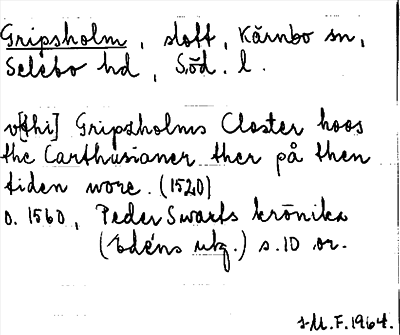 Gripsholm, slott, Kärnbo sn,
Selebo hd, Söd. l.
v[thi] Gripsholms Closter hoos
the Carthusianer ther på then
tiden wore. (1520)
o. 1560, Peder Swarts krönika
(Edéns utg.) s. 10 or.
M.F. 1964.